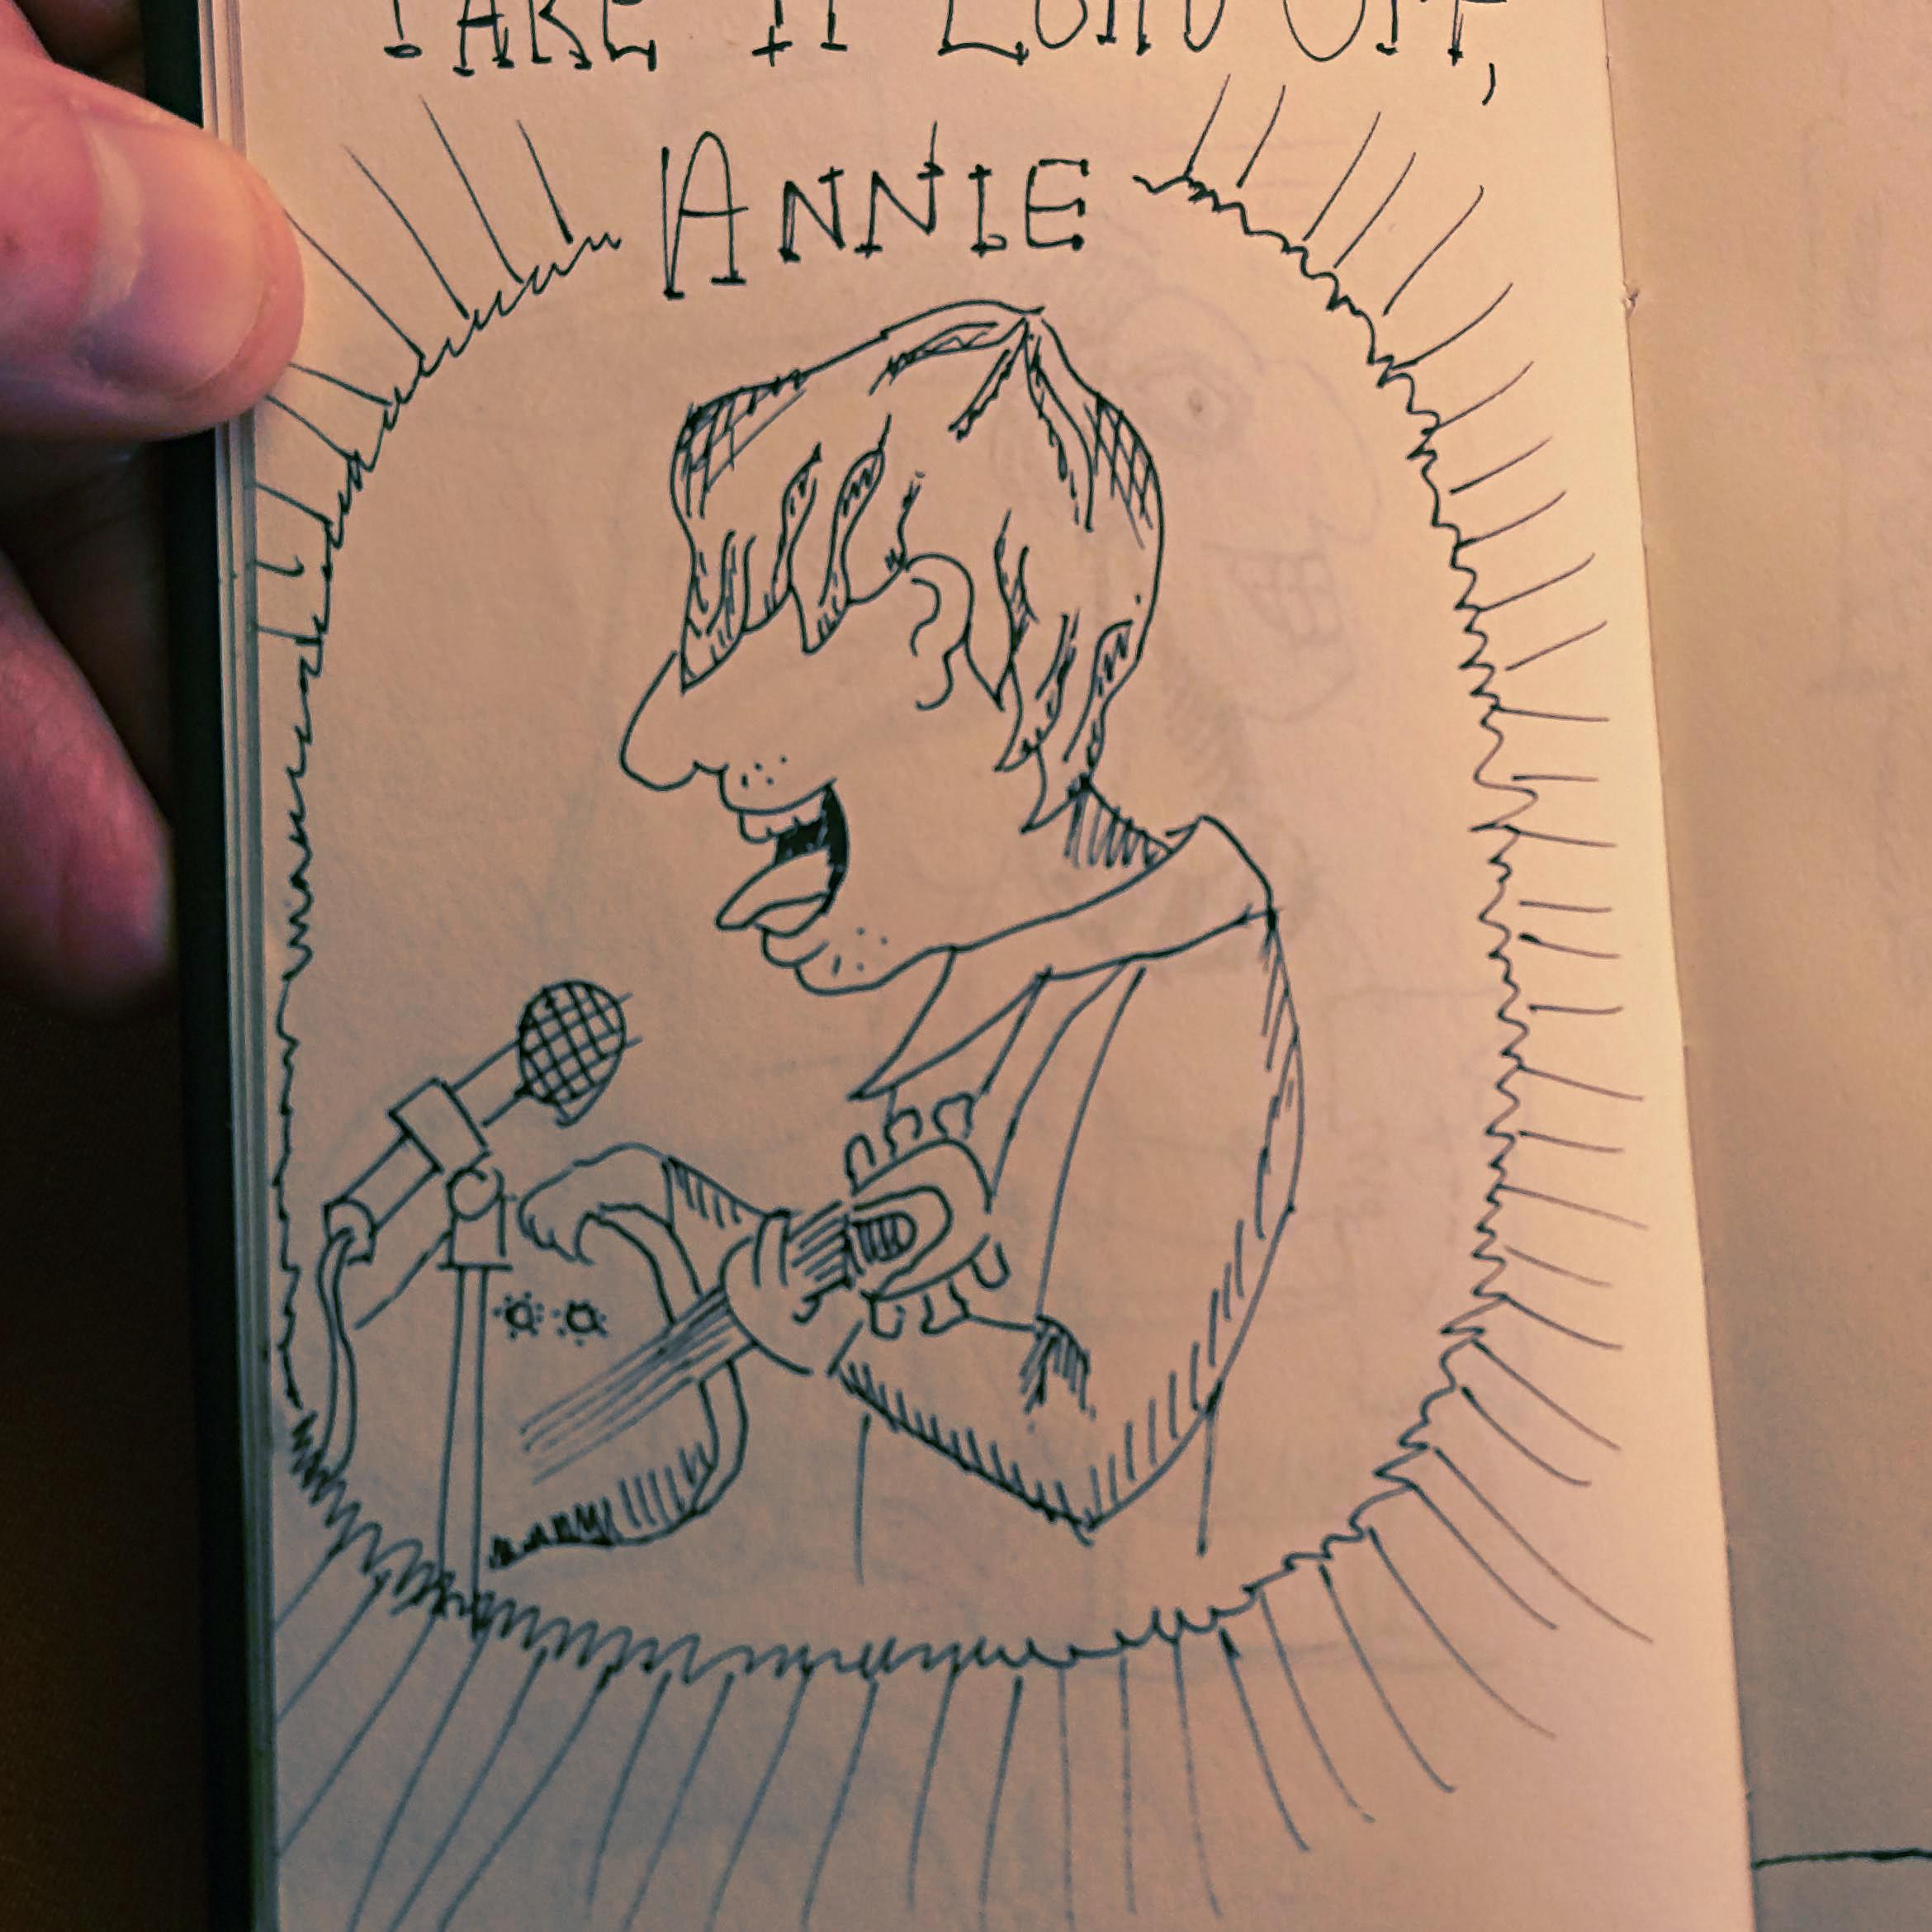 TAKE IT LOAD OFF,
ANNIE